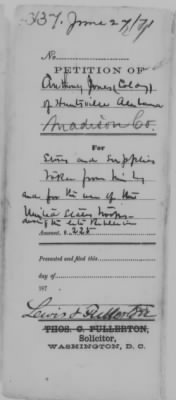 337. June 27/71
No.
PETITION OF
Anthony Jones (Cold)
of Huntsville Alabama
Madison Co.
For
Stores and Supplies
taken from him by
and for the use of the
United States troops
during the late Rebellion
Amount, $ 225
Presented and filed this
day of
187
Lewis & Fullerton
THOS. C. FULLERTON,
Solicitor,
WASHINGTON, D. C.